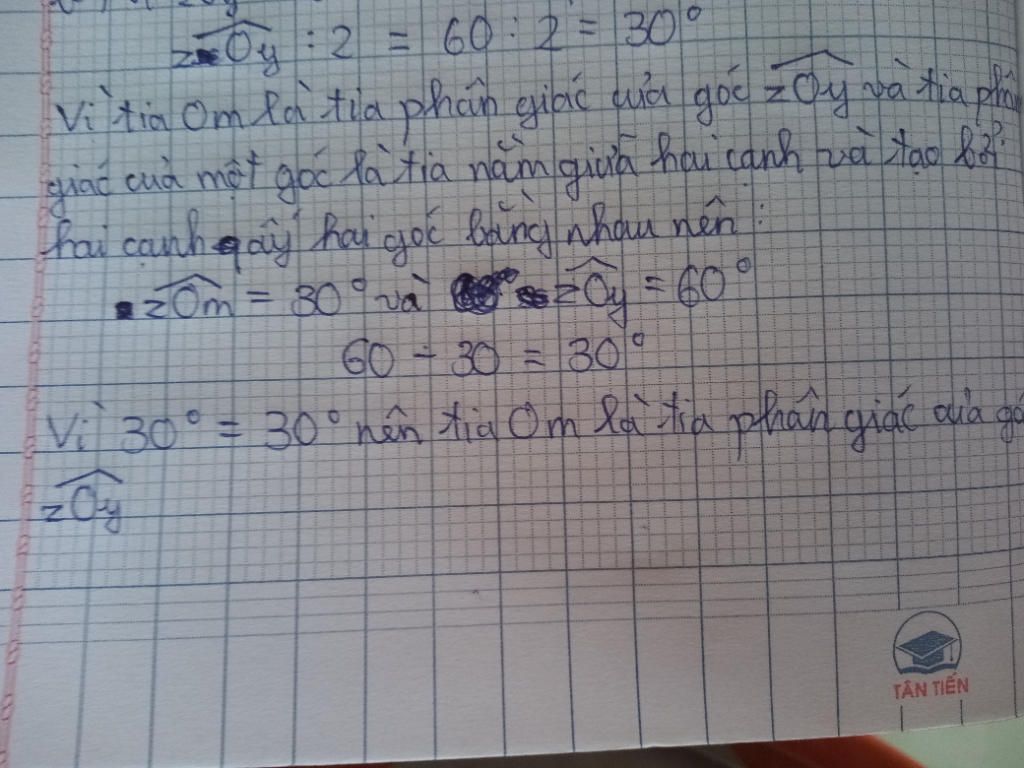 zOy : 2 = 60 : 2 = 30°
Vì tia Om là tia phân giác của góc zOy và tia phân
giác của một góc là tia nằm giữa hai cạnh và tạo bởi
hai cạnh ấy hai góc bằng nhau nên :
zOm = 30° và zOy = 60°
60 - 30 = 30°
Vì 30° = 30° nên tia Om là tia phân giác của gó
zOy
TÂN TIẾN